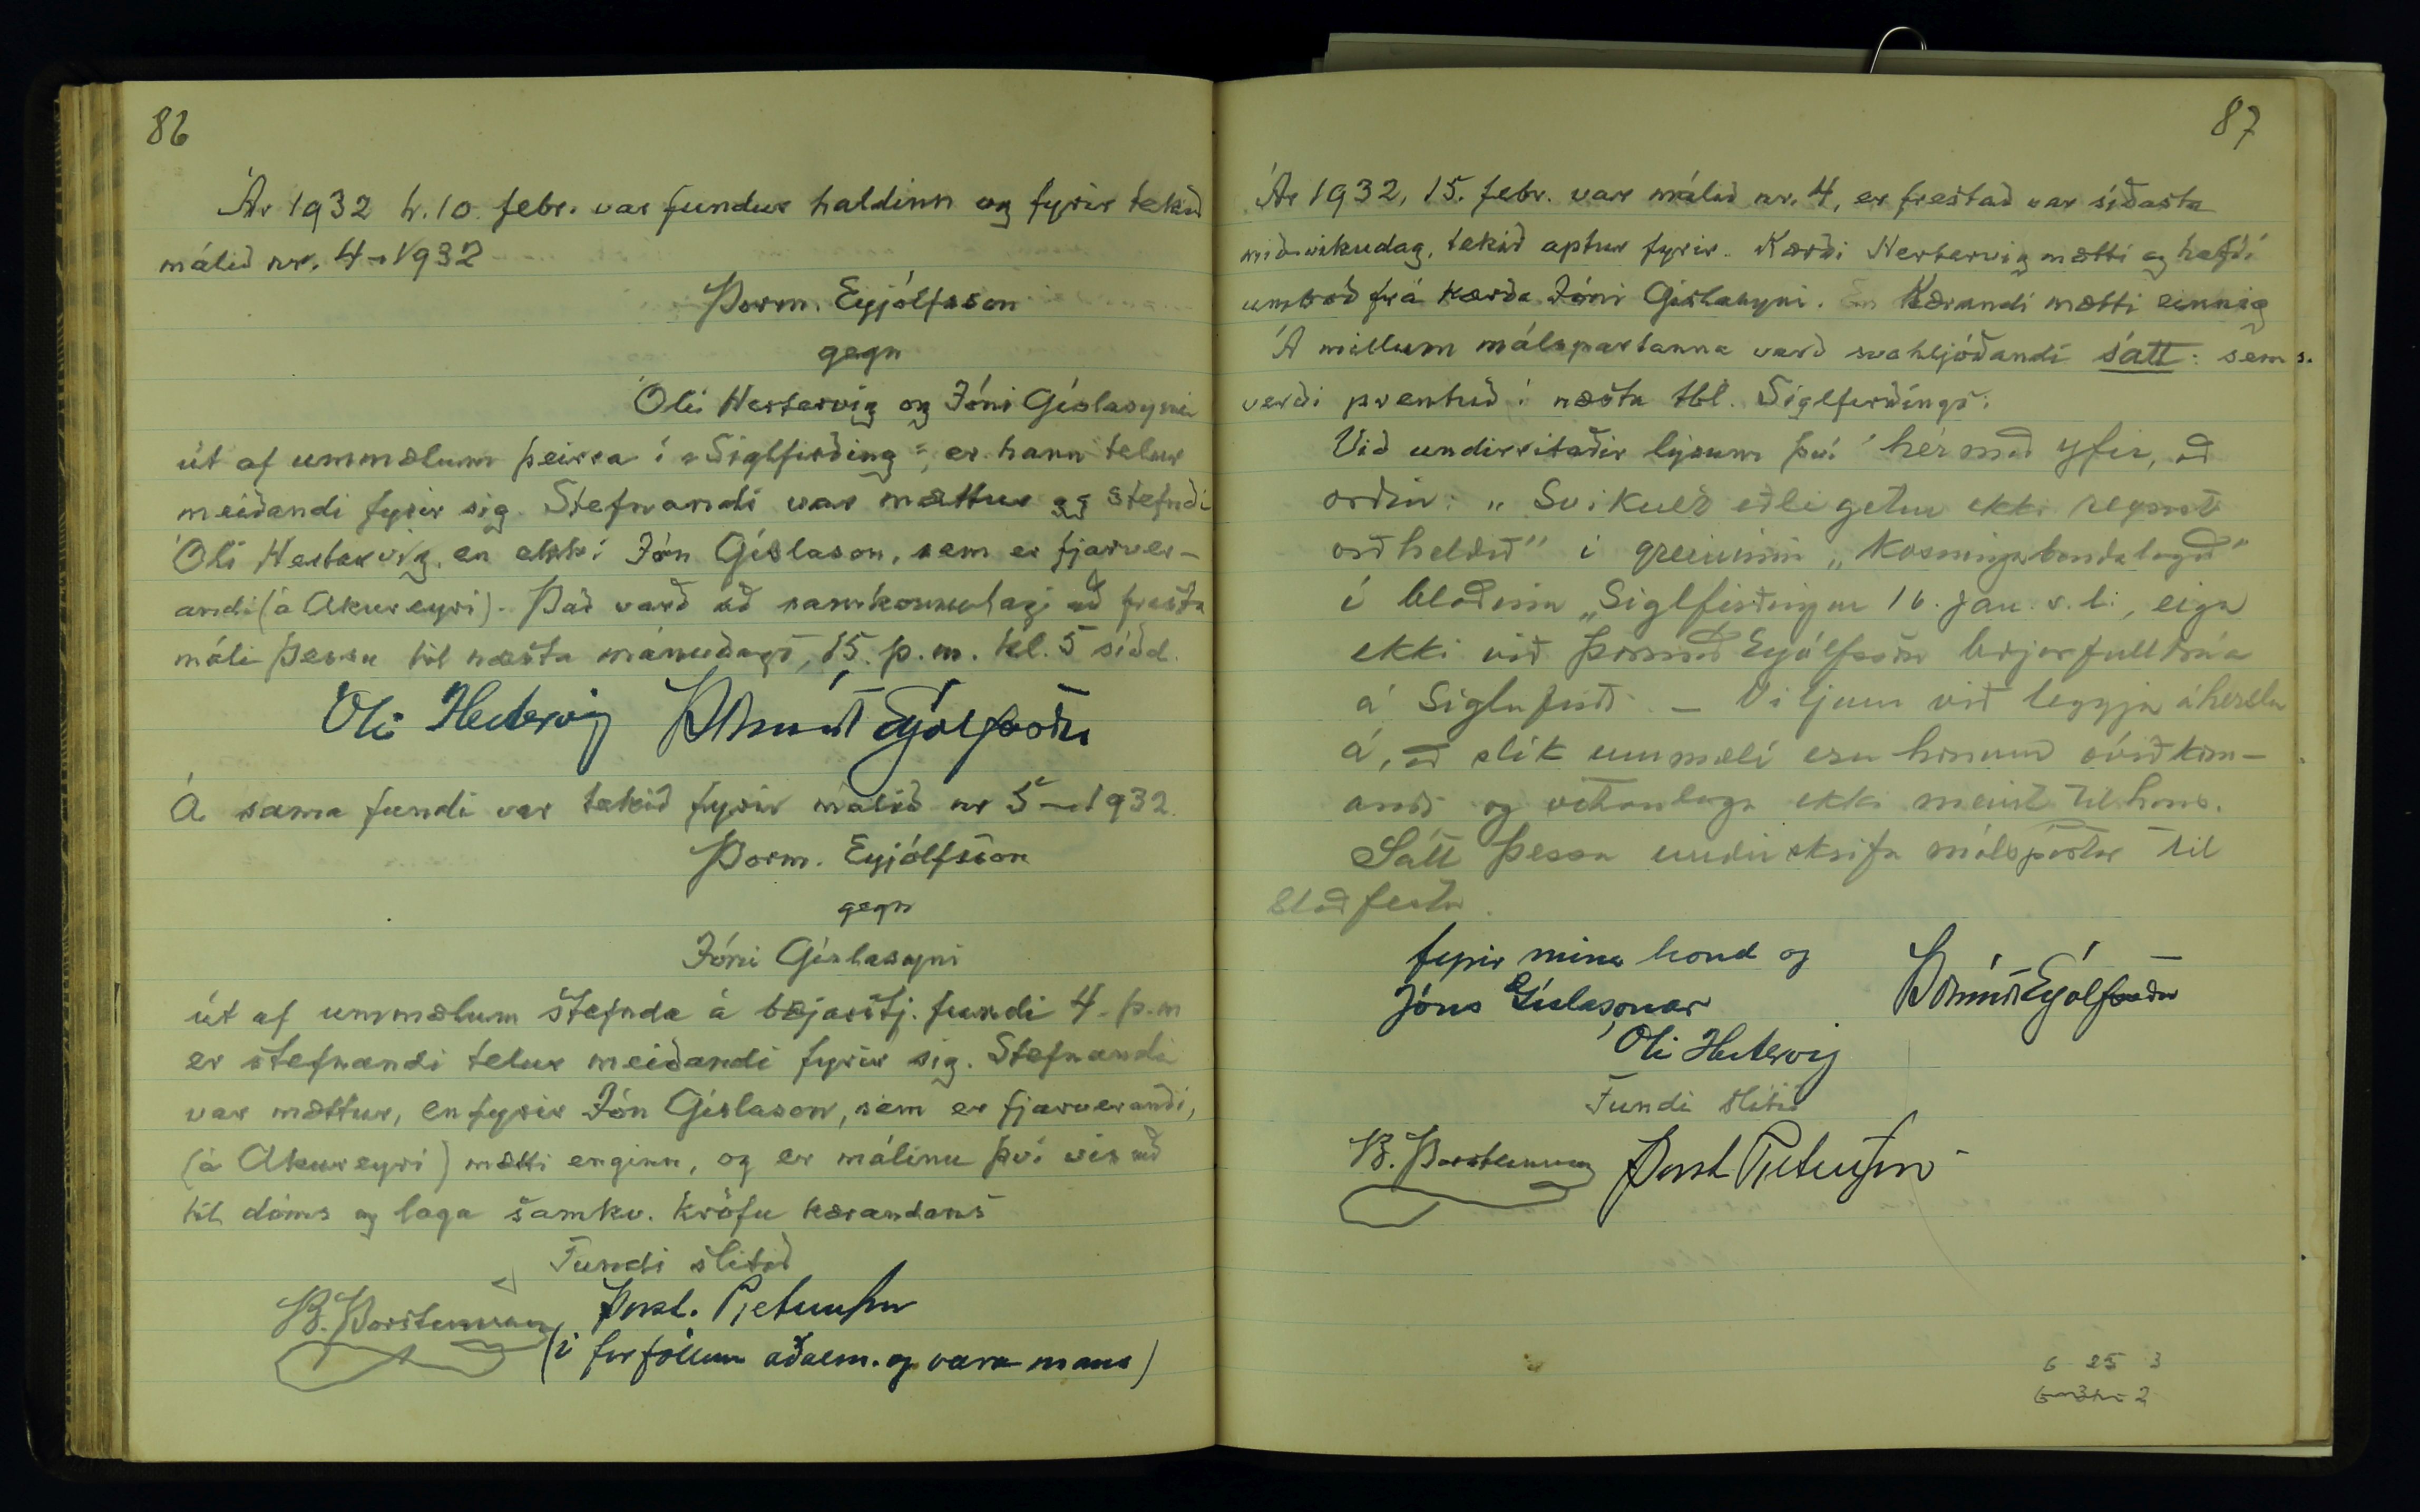 86
Ár 1932 h. 10. febr. var fundur haldinn og fyrir tekið
málið nr. 4-1932
Þorm. Eyjólfsson
gegn
Óli Hertervig og Jóni Gíslasyni
út af ummælum þeirra í "Siglfirðing", er hann telur
meiðandi fyrir sig. Stefnandi var mættur og stefndi
Óli Hertervig, en ekki Jón Gíslason, sem er fjarver-
andi (á Akureyri). Það varð að samkomulagi að fresta
máli þessu til næsta mánudags, 15. þ.m. kl. 5 síðd.
Óli Hertervig Þormóður Eyjólfsson
Á sama fundi var tekið fyrir málið nr 5-1932.
Þorm. Eyjólfsson
gegn
Jóni Gíslasyni
út af ummælum stefnda á bæjarstj. fundi 4. þ.m
er stefnandi telur meiðandi fyrir sig. Stefnandi
var mættur, en fyrir Jón Gíslason, sem er fjarverandi,
(á Akureyri) mætti enginn, og er málinu því vísað
til dóms og laga samkv. kröfu kærandans
Fundi slitið
B. Þorsteinsson Þorst. Pjetursson
(í forföllum aðalm. og varamanns)
87
Ár 1932, 15. febr. var málið nr. 4, er frestað var síðasta
miðvikudag, tekið aptur fyrir. Kærði Hertervig mætti og hafði
umboð frá kærða Jóni Gíslasyni. Kærandi mætti einnig
Á millum málspartanna varð svahljóðandi sátt: sem s.
verði prentuð í næsta tbl. Siglfirðings:
Við undirritaðir lýsum því hér með yfir, að
orðin: „Svikult eðli getur ekki reynst
orðheldið" í greininni „Kosningabandalagið"
í blaðinu „Siglfirðingur 16. jan. s.l., eiga
ekki við Þormóð Eyjólfsson bæjarfulltrúa
á Siglufirði. - Viljum við leggja áherslu
á, að slík ummæli eru honum óviðkom-
andi og vitanlega ekki meint til hans.
Sátt þessa undirskrifa málspartar til
staðfestu.
fyrir mína hond og
Jóns Gíslasonar Þormóður Eyjólfsson
Óli Hertervig
Fundi slitið
B. Þorsteinsson Þorst Pjetursson
6 25 3